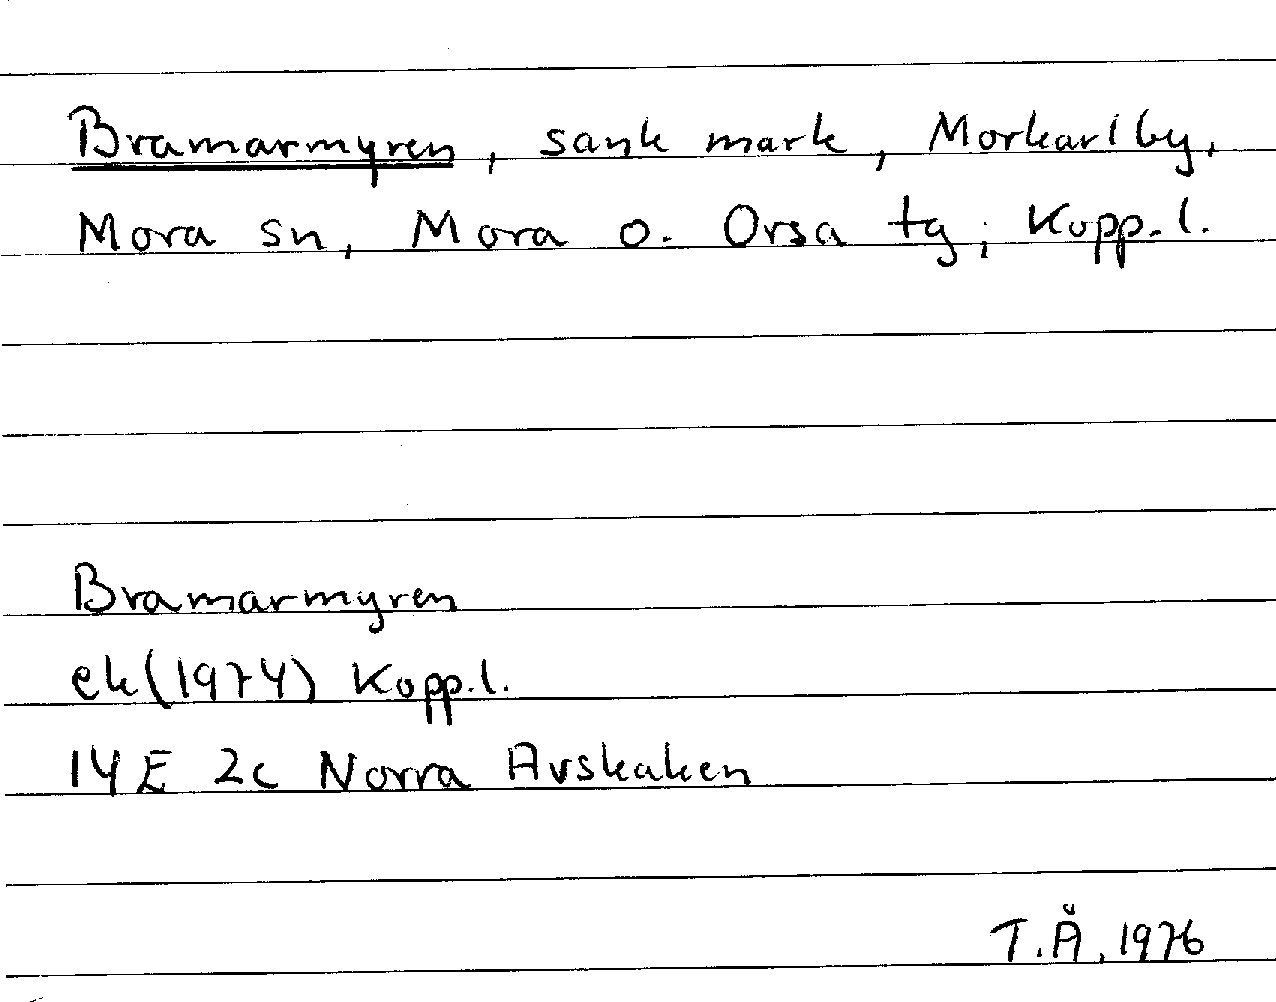 Bramarmyren, sank mark, Morkarlby,
Mora sn, Mora o. Orsa tg; Kopp.l.
Bramarmyren
ek(1974) Kopp.l.
14E 2c Norra Avskaken
T.Å, 1976